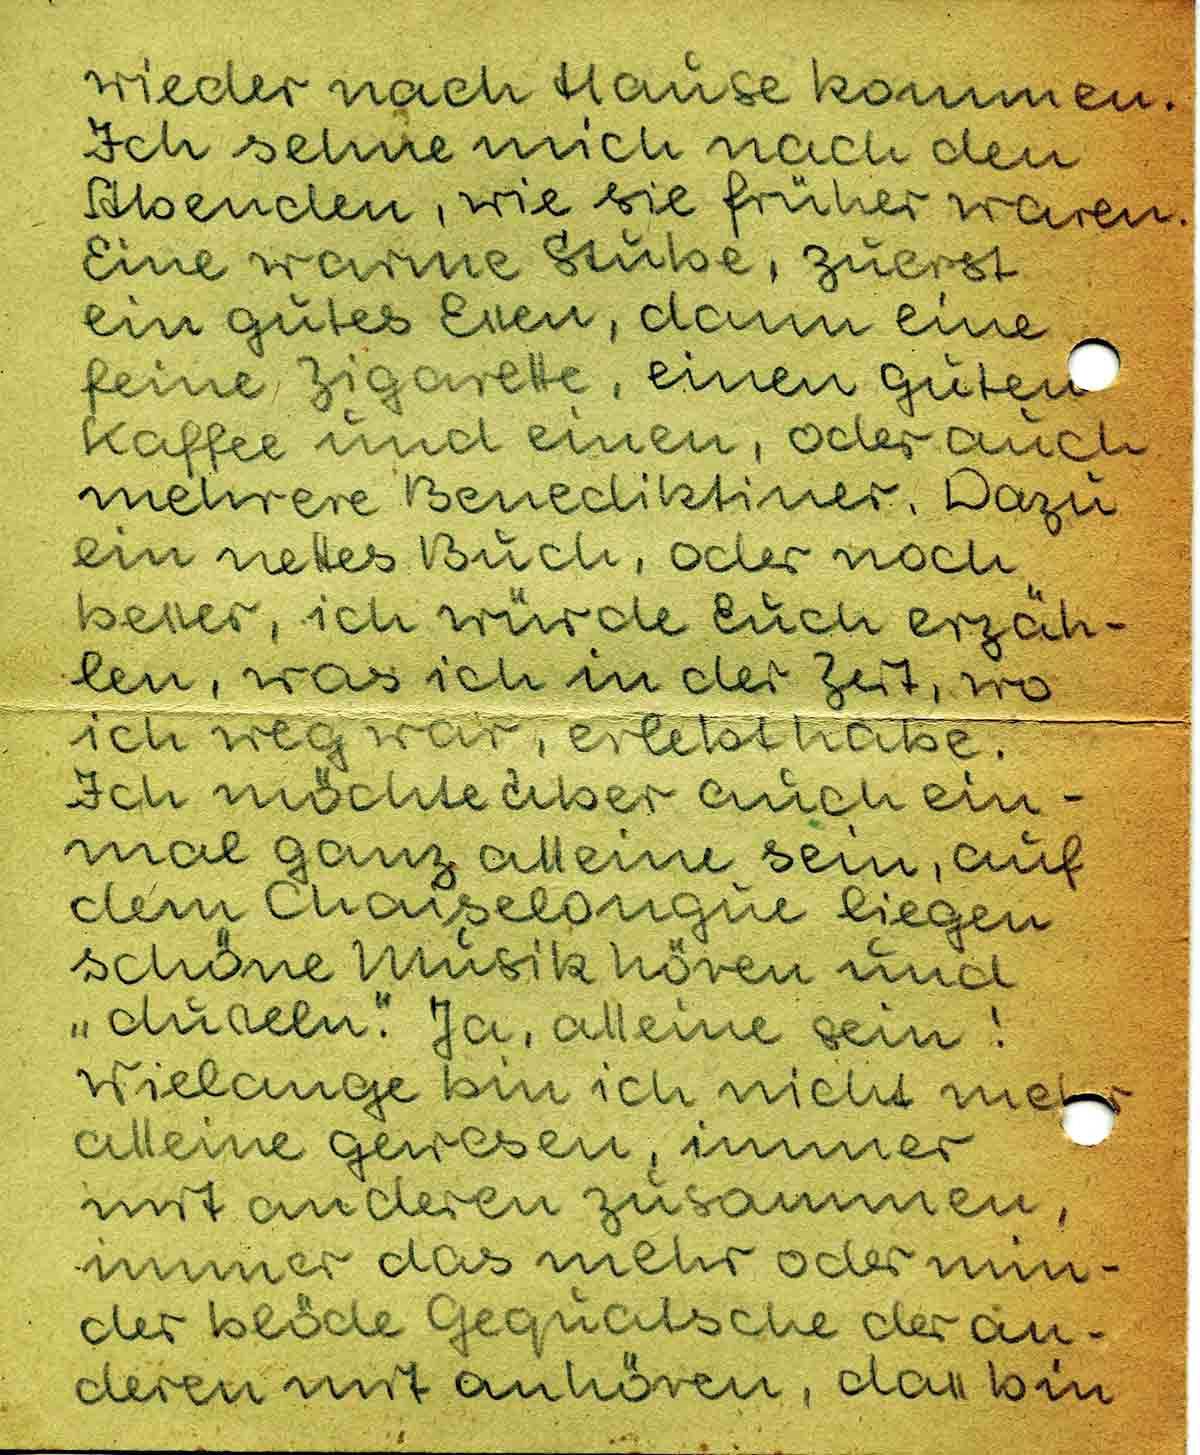 wieder nach Hause kommen.
Ich sehne mich nach den
Abenden, wie sie früher waren.
Eine warme Stube, zuerst
ein gutes Essen, dann eine
feine Zigarette, einen guten
Kaffee und einen, oder auch
mehrere Benediktiner. Dazu
ein nettes Buch, oder noch
besser, ich würde Euch erzäh-
len, was ich in der Zeit, wo
ich weg war, erlebt habe.
Ich möchte aber auch ein-
mal ganz alleine sein, auf
dem Chaiselongue liegen
schöne Musik hören und
„duseln". Ja, alleine sein!
Wielange bin ich nicht mehr
alleine gewesen, immer
mit anderen zusammen,
immer das mehr oder min-
der blöde Gequatsche der an-
deren mit anhören, dass bin